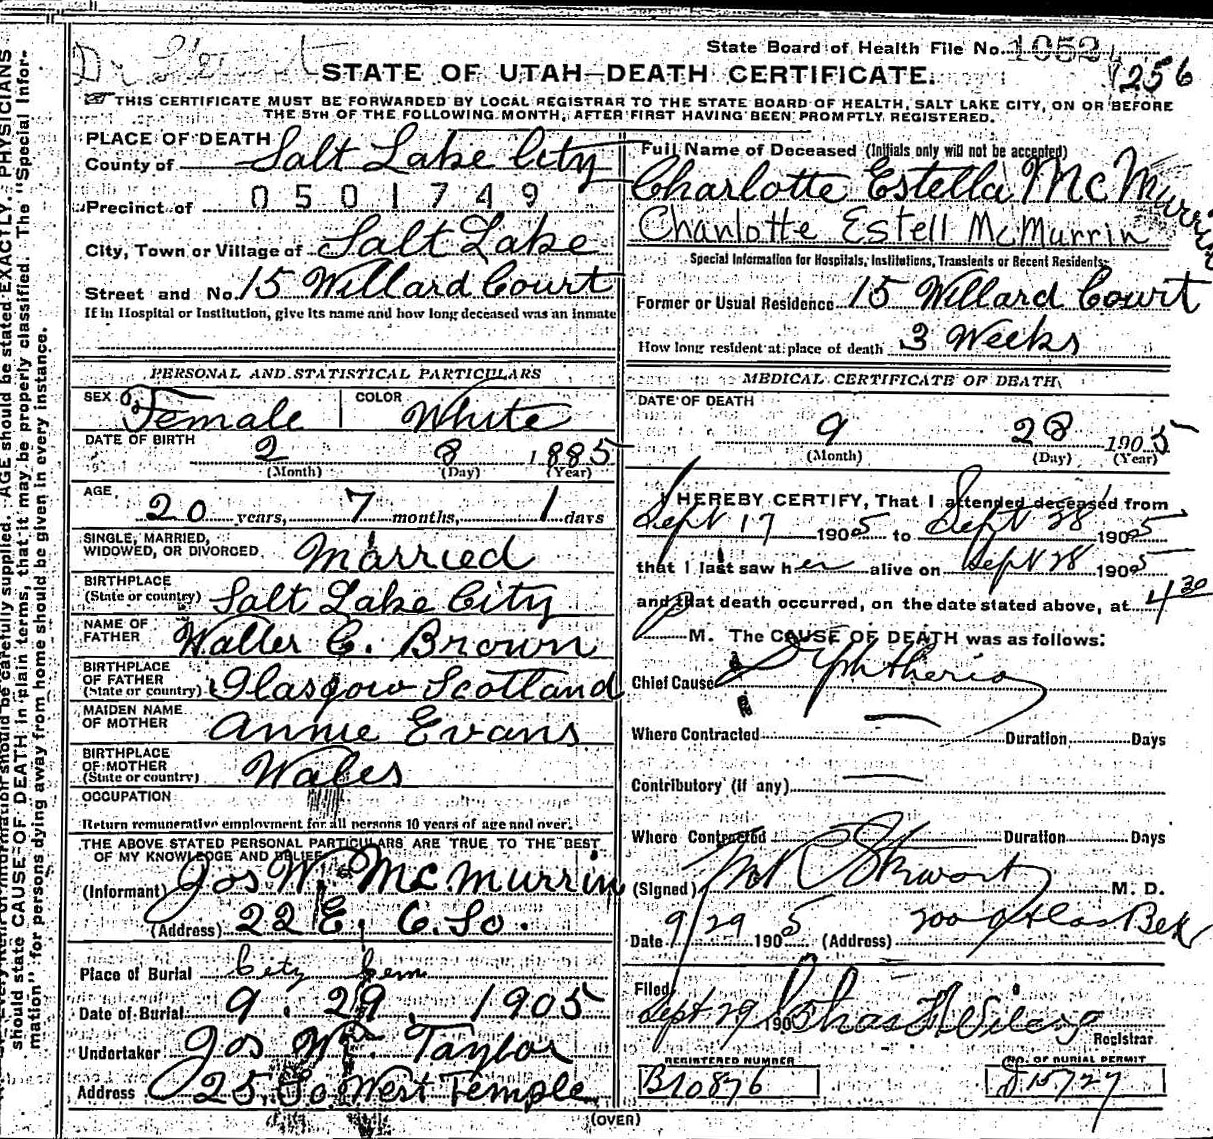 State Board of Health File No. 1052
256
Dr Stewart
STATE OF UTAH—DEATH CERTIFICATE.
THIS CERTIFICATE MUST BE FORWARDED BY LOCAL REGISTRAR TO THE STATE BOARD OF HEALTH, SALT LAKE CITY, ON OR BEFORE
THE 5TH OF THE FOLLOWING MONTH, AFTER FIRST HAVING BEEN PROMPTLY REGISTERED.
PLACE OF DEATH
County of Salt Lake City
0501749
Precinct of
City, Town or Village of Salt Lake
Street and No. 15 Willard Court
If in Hospital or Institution, give its name and how long deceased was an inmate
PERSONAL AND STATISTICAL PARTICULARS
SEX Female COLOR White
DATE OF BIRTH 2 8 1885
(Month) (Day) (Year)
AGE 20 years, 7 months, 1 days
SINGLE, MARRIED,
WIDOWED, OR DIVORCED Married
BIRTHPLACE
(State or country) Salt Lake City
NAME OF
FATHER Walter C. Brown
BIRTHPLACE
OF FATHER
(State or country) Glasgow Scotland
MAIDEN NAME
OF MOTHER Annie Evans
BIRTHPLACE
OF MOTHER
(State or country) Wales
OCCUPATION
Return remunerative employment for all persons 10 years of age and over.
THE ABOVE STATED PERSONAL PARTICULARS ARE TRUE TO THE BEST
OF MY KNOWLEDGE AND BELIEF
(Informant) Jos W. McMurrin
(Address) 22 E. 6. So.
Place of Burial City Cem
Date of Burial 9. 29. 1905
Undertaker Jos Wm. Taylor
Address 25 So West Temple
Full Name of Deceased (Initials only will not be accepted)
Charlotte Estella McMurrin
Charlotte Estell McMurrin
Special Information for Hospitals, Institutions, Transients or Recent Residents:
Former or Usual Residence 15 Willard Court
How long resident at place of death 3 Weeks
MEDICAL CERTIFICATE OF DEATH
DATE OF DEATH
9 28 1905
(Month) (Day) (Year)
I HEREBY CERTIFY, That I attended deceased from
Sept 17 1905 to Sept 28 1905
that I last saw her alive on Sept 28 1905
and that death occurred, on the date stated above, at 4 30
M. The CAUSE OF DEATH was as follows:
Chief Cause Diphtheria
Where Contracted — Duration Days
Contributory (if any) —
Where Contracted Duration Days
(Signed) Stewart M. D.
Date 9/29 1905 (Address) 200 Atlas Bek
Filed
Sept 29 1905 Chas Registrar
REGISTERED NUMBER
B10876
NO. OF BURIAL PERMIT
15727
(OVER)
AGE should be stated EXACTLY. PHYSICIANS
should state CAUSE OF DEATH in plain terms, that it may be properly classified. The "Special Infor-
mation" for persons dying away from home should be given in every instance.